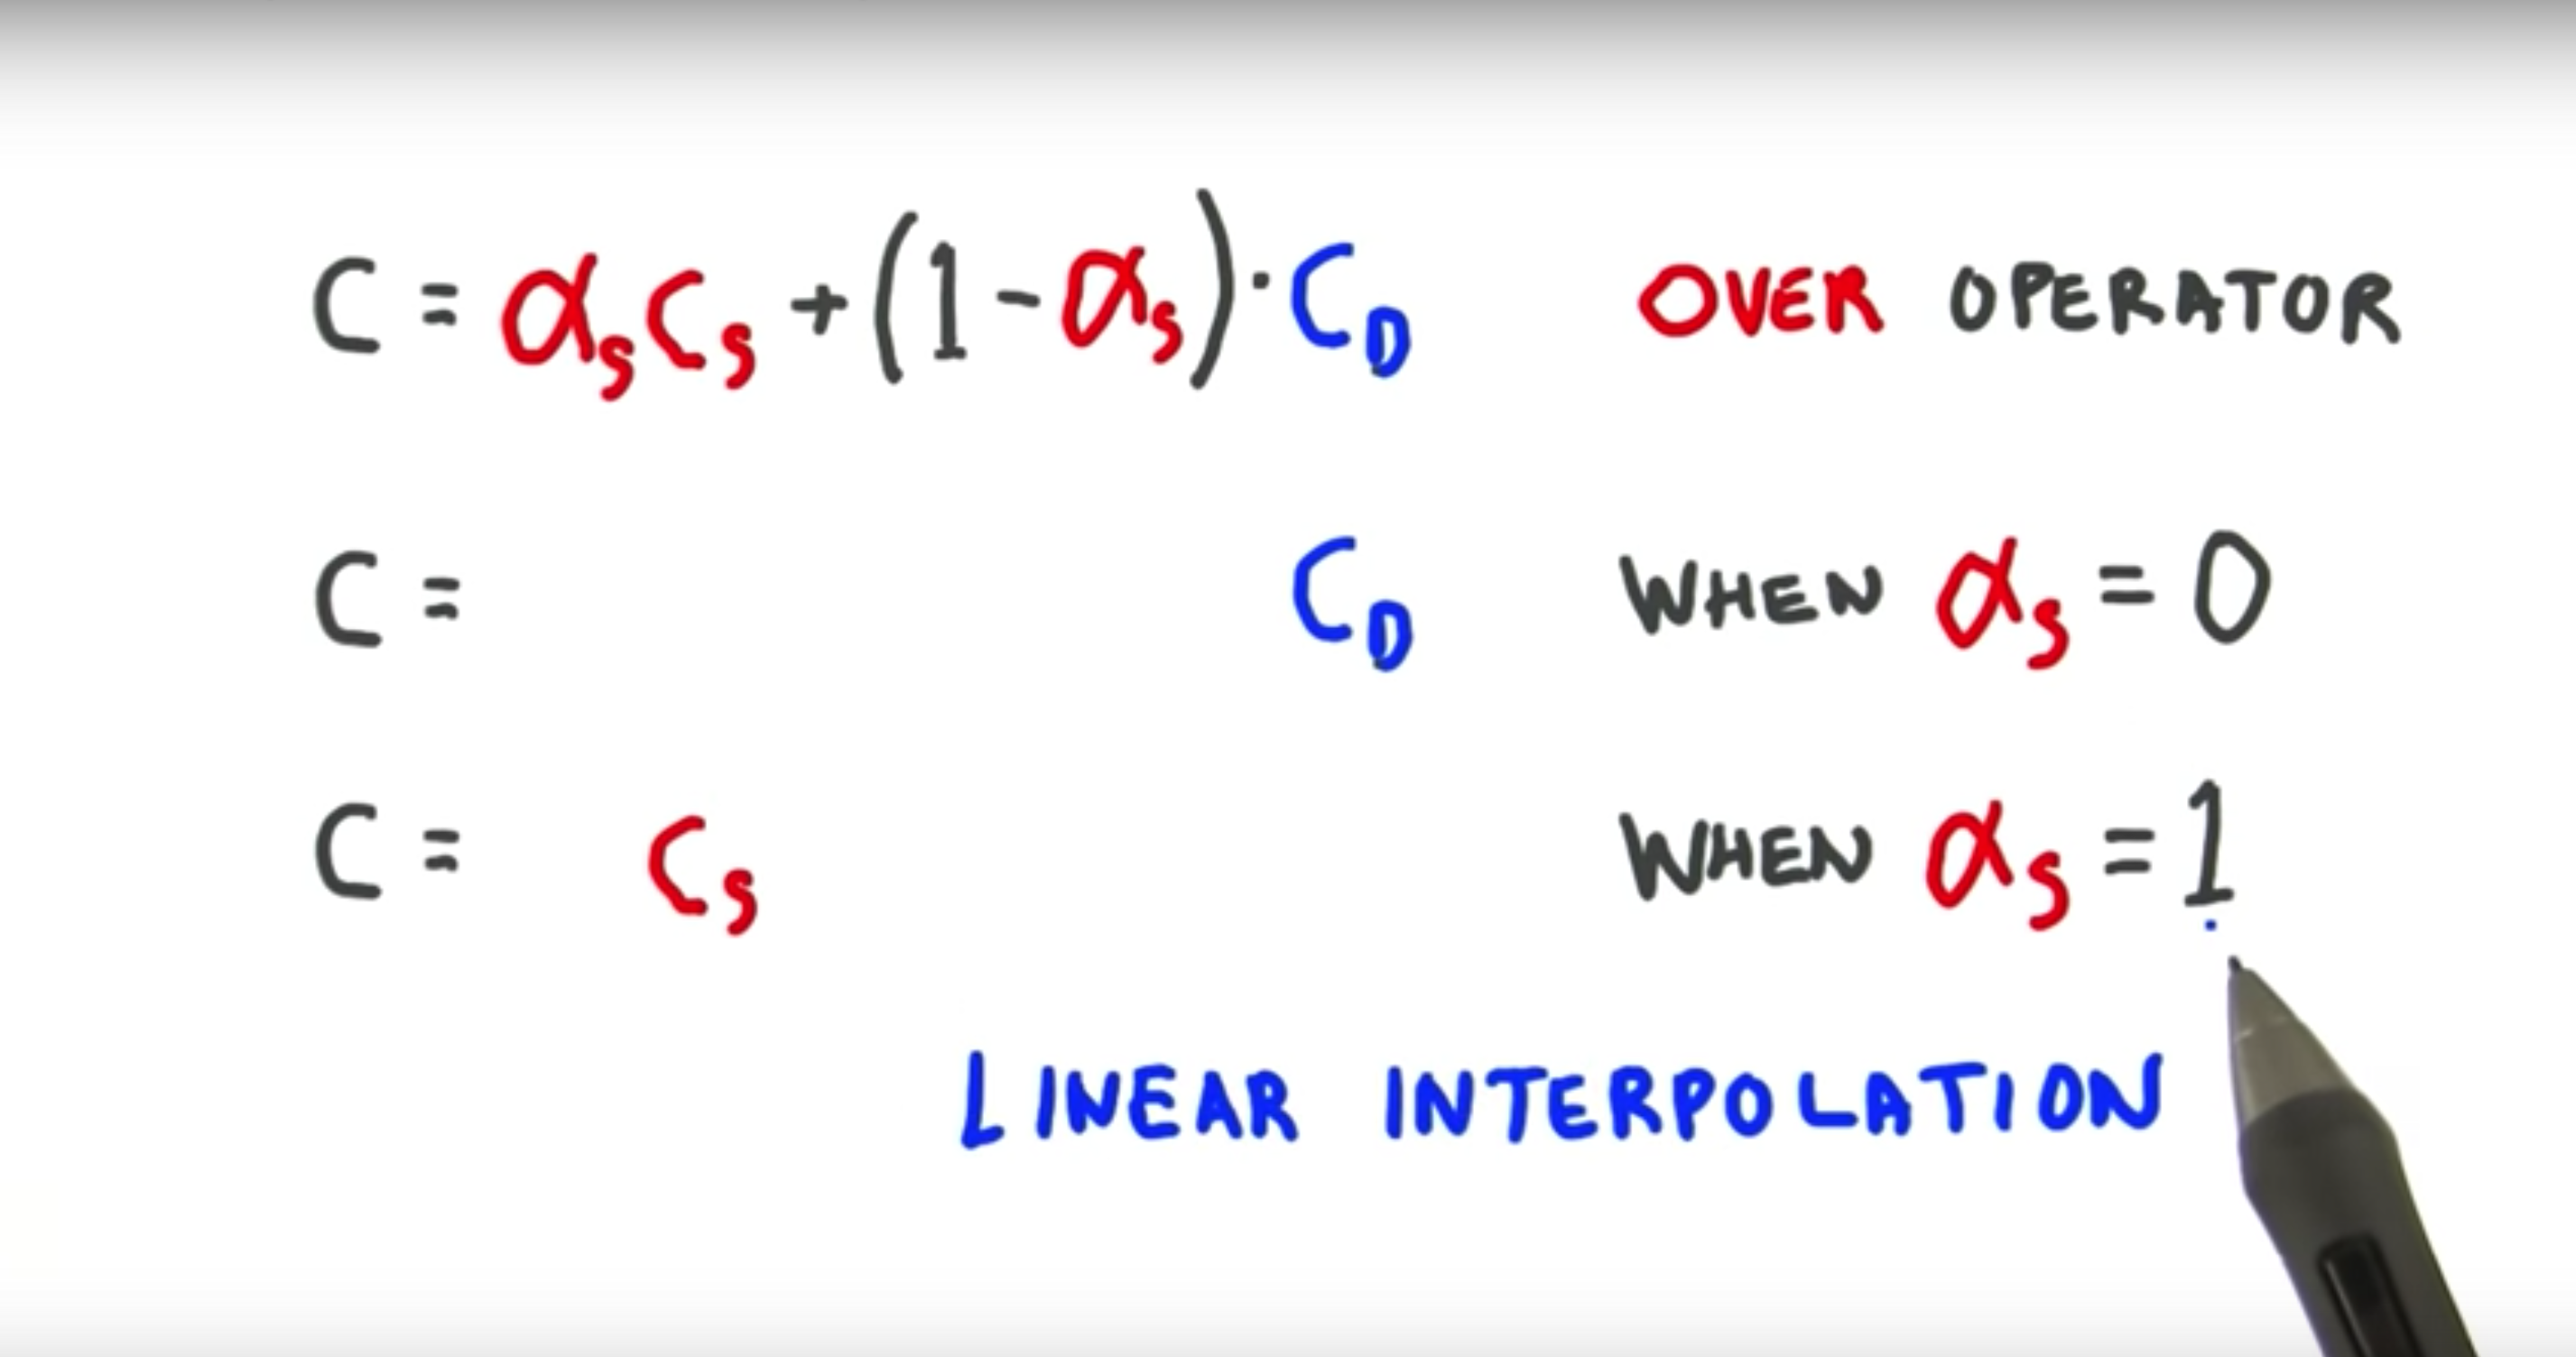 C = αₛCₛ + (1 - αₛ) · C_D OVER OPERATOR
C = C_D WHEN αₛ = 0
C = Cₛ WHEN αₛ = 1
LINEAR INTERPOLATION